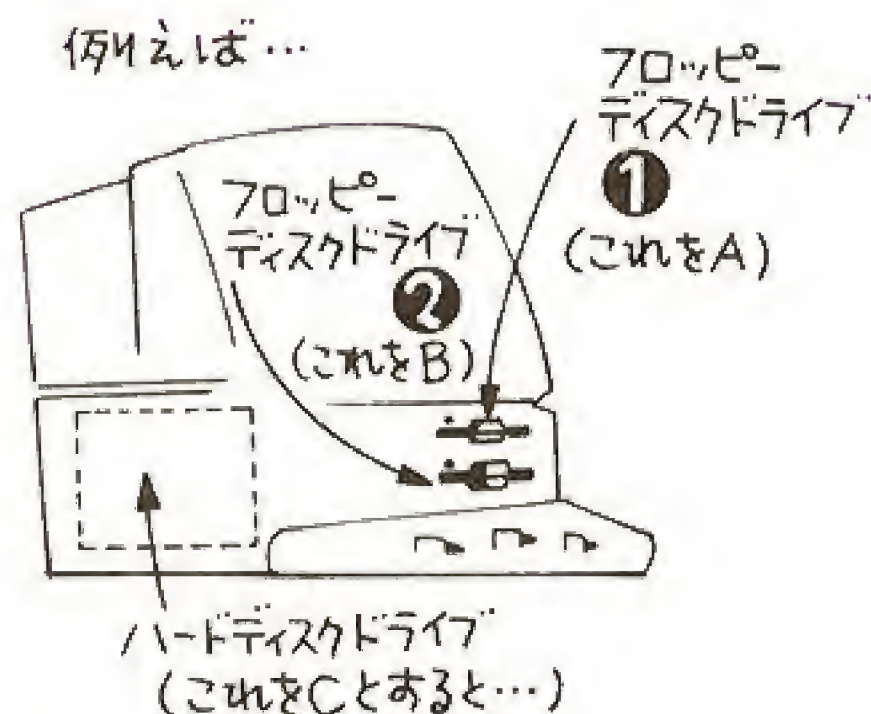 例えば…
フロッピー
ディスクドライブ
❶
(これをA)
フロッピー
ディスクドライブ
❷
(これをB)
ハードディスクドライブ
(これをCとすると…)